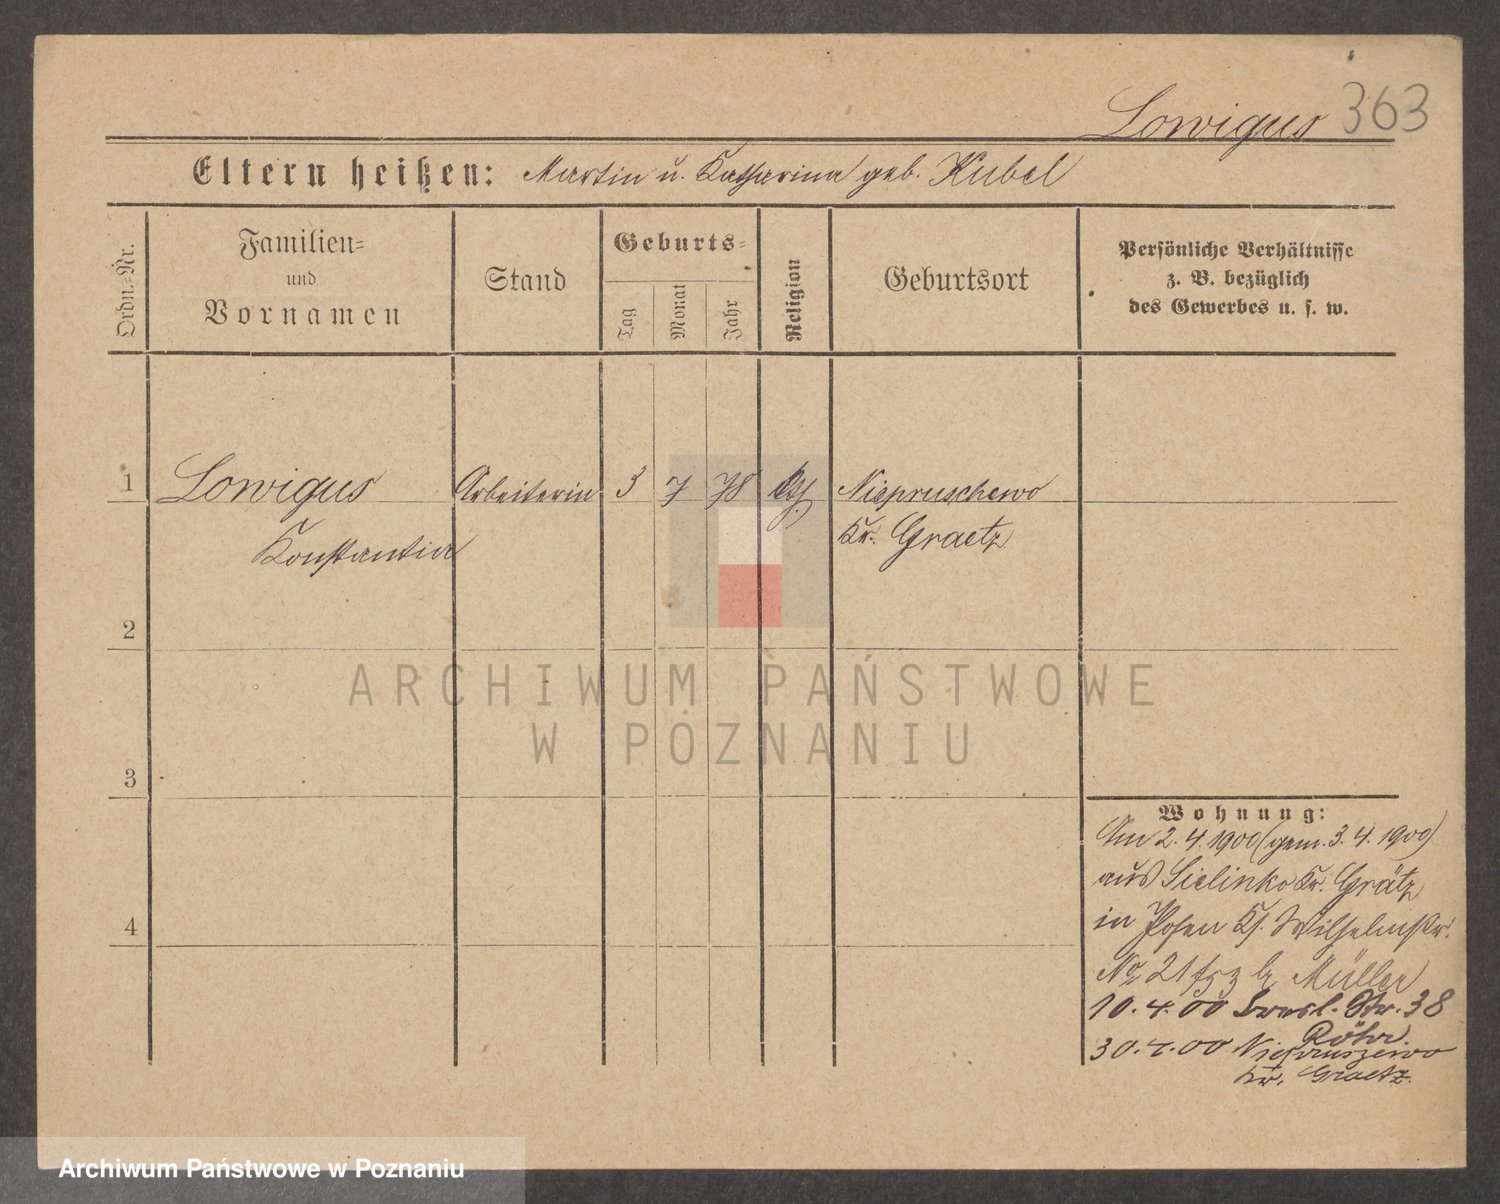 Lowigus 363
Eltern heißen: Martin u. Katharina geb. Kubel
Ordn.-Nr.
Familien-
und
Vornamen
Stand
Geburts-
Tag
Monat
Jahr
Religion
Geburtsort
Persönliche Verhältnisse
z. B. bezüglich
des Gewerbes u. s. w.
1 Lowigus Arbeiterin 3 7 78 Kth. Niepruschewo
Konstantia Kr. Graetz
2
3
4
ARCHIWUM PAŃSTWOWE
W POZNANIU
Wohnung:
Am 2.4.1900 (gem. 3.4.1900)
aus Sielinko Kr. Grätz
in Posen Kl. Wilhelmstr.
No 21 b Müller
10.4.00 Bresl. Str. 38
Röhr.
30.4.00 Niepruszewo
Kr. Graetz.
Archiwum Państwowe w Poznaniu